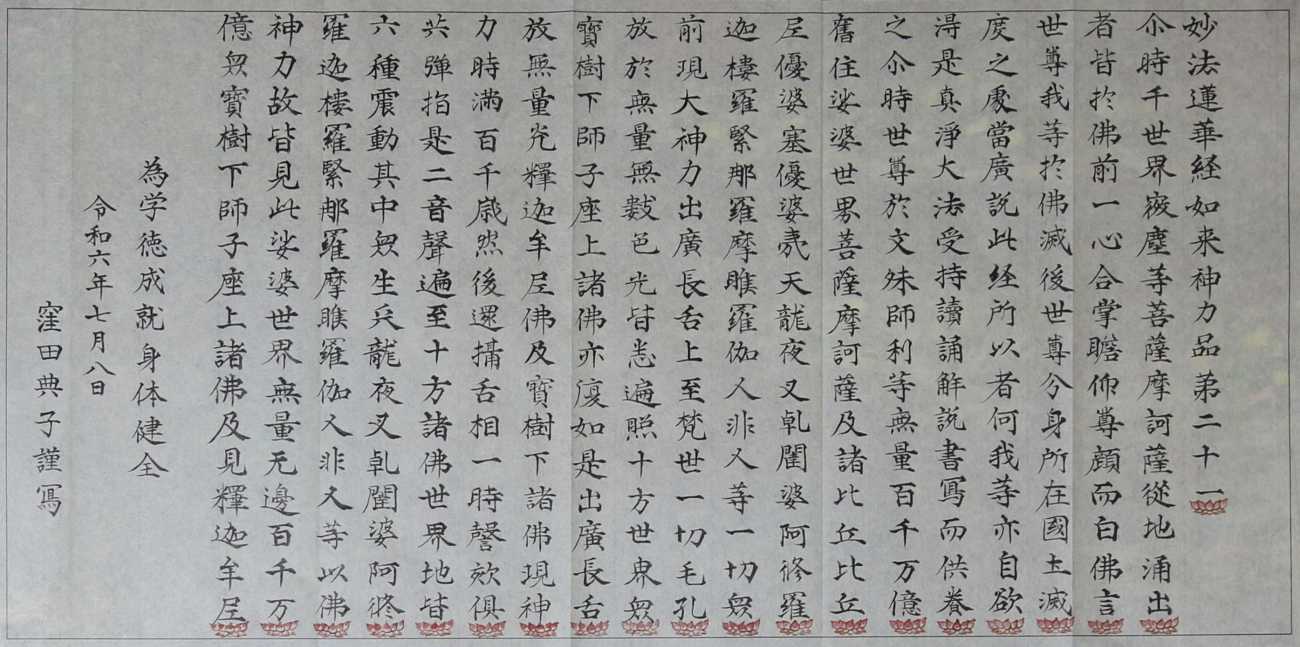 妙法蓮華経如来神力品第二十一
尒時千世界微塵等菩薩摩訶薩從地涌出
者皆於佛前一心合掌瞻仰尊顔而白佛言
世尊我等於佛滅後世尊分身所在國土滅
度之處當廣説此経所以者何我等亦自欲
得是真淨大法受持讀誦解説書寫而供養
之尒時世尊於文殊師利等無量百千万億
舊住娑婆世界菩薩摩訶薩及諸比丘比丘
尼優婆塞優婆夷天龍夜叉乹闥婆阿修羅
迦樓羅緊那羅摩睺羅伽人非人等一切眾
前現大神力出廣長舌上至梵世一切毛孔
放於無量無數色光皆悉遍照十方世界眾
寶樹下師子座上諸佛亦復如是出廣長舌
放無量光釋迦牟尼佛及寶樹下諸佛現神
力時滿百千歳然後還攝舌相一時謦欬俱
共彈指是二音聲遍至十方諸佛世界地皆
六種震動其中眾生天龍夜叉乹闥婆阿修
羅迦樓羅緊那羅摩睺羅伽人非人等以佛
神力故皆見此娑婆世界無量无邊百千万
億眾寶樹下師子座上諸佛及見釋迦牟尼
為学徳成就身体健全
令和六年七月八日
窪田典子謹寫